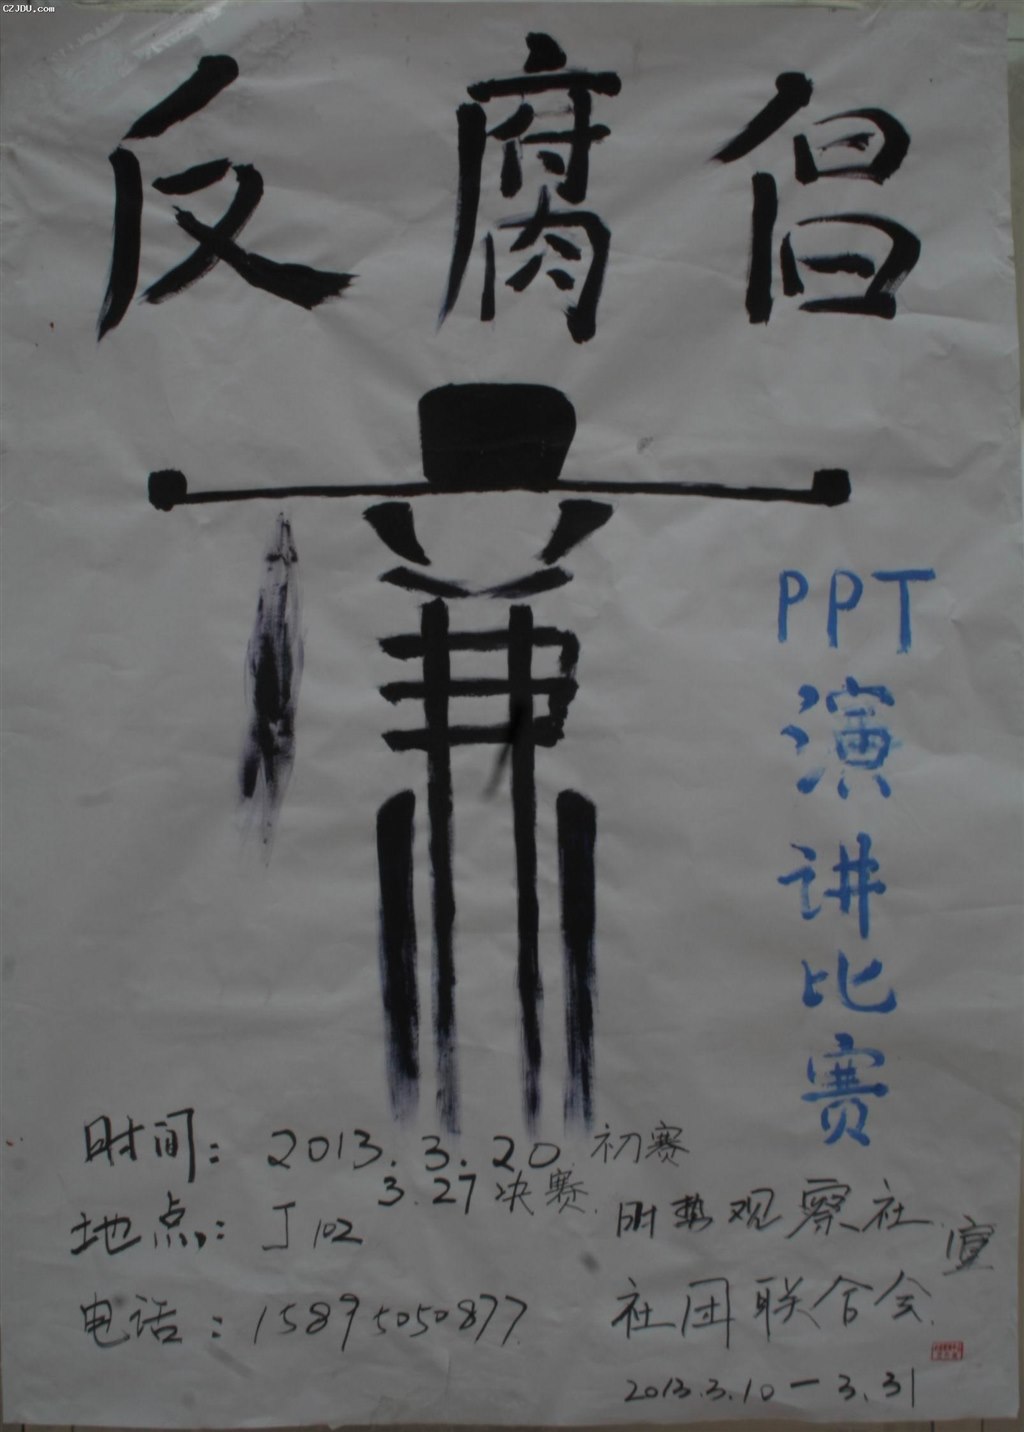 CZJDU.com
反腐倡
廉
PPT
演讲比赛
时间：2013.3.20 初赛
3.27 决赛
地点：J102
电话：15895050877
时势观察社
社团联合会
宣
2013.3.10－3.31